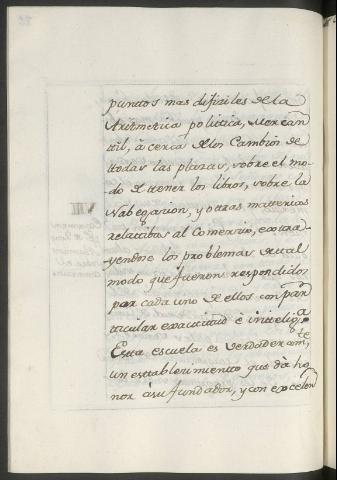 puntos mas dificiles de la
Aritmetica politica, Mercan
til, à cerca de los Cambios de
ttodas las plazas, sobre el mo-
do de ttener los libros, sobre la
Nabegazion, y otras matterias
relattibas al Comerzio, exttra-
yendose los problemas de tal
modo que fueron respondidos
por cada uno de ellos con par
ticular exacttitud è intteligª.
Estta escuela es verdaderamte.
un establezimiento que dà ho
nor à su fundador, y con excelen
VIII